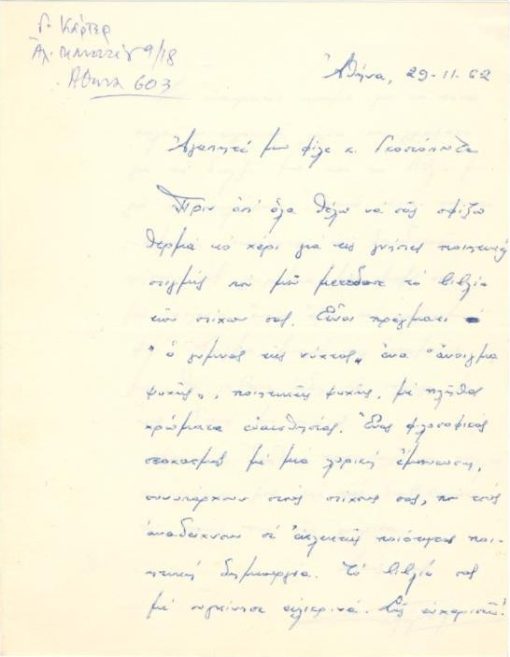 Γ. Κάρτερ
Αθήνα 603
Ἀθήνα, 29-11-62
Ἀγαπητέ μου φίλε κ.
Πρίν ἀπ' ὅλα θέλω νά σᾶς σφίξω
θερμά τό χέρι για τίς γνήσιες ποιητικές
στιγμές πού μοῦ μετέδωσε τό βιβλίο
τῶν στίχων σας. Εἶναι πράγματι
"ὁ γυμνός τῆς νύχτας" ἕνα "ἄνοιγμα
ψυχῆς", ποιητικῆς ψυχῆς, μέ πλῆθος
χρώματα εὐαισθησίας. Ἕνας φιλοσοφικός
στοχασμός μέ μιά λυρική ἔμπνευση,
συνυπάρχουν στούς στίχους σας, πού τούς
ἀναδείχνουν σέ ἐκλεκτῆς ποιότητας ποι-
ητική δημιουργία. Τό βιβλίο σας
μέ συγκίνησε εἰλικρινά. Σᾶς εὐχαριστῶ!